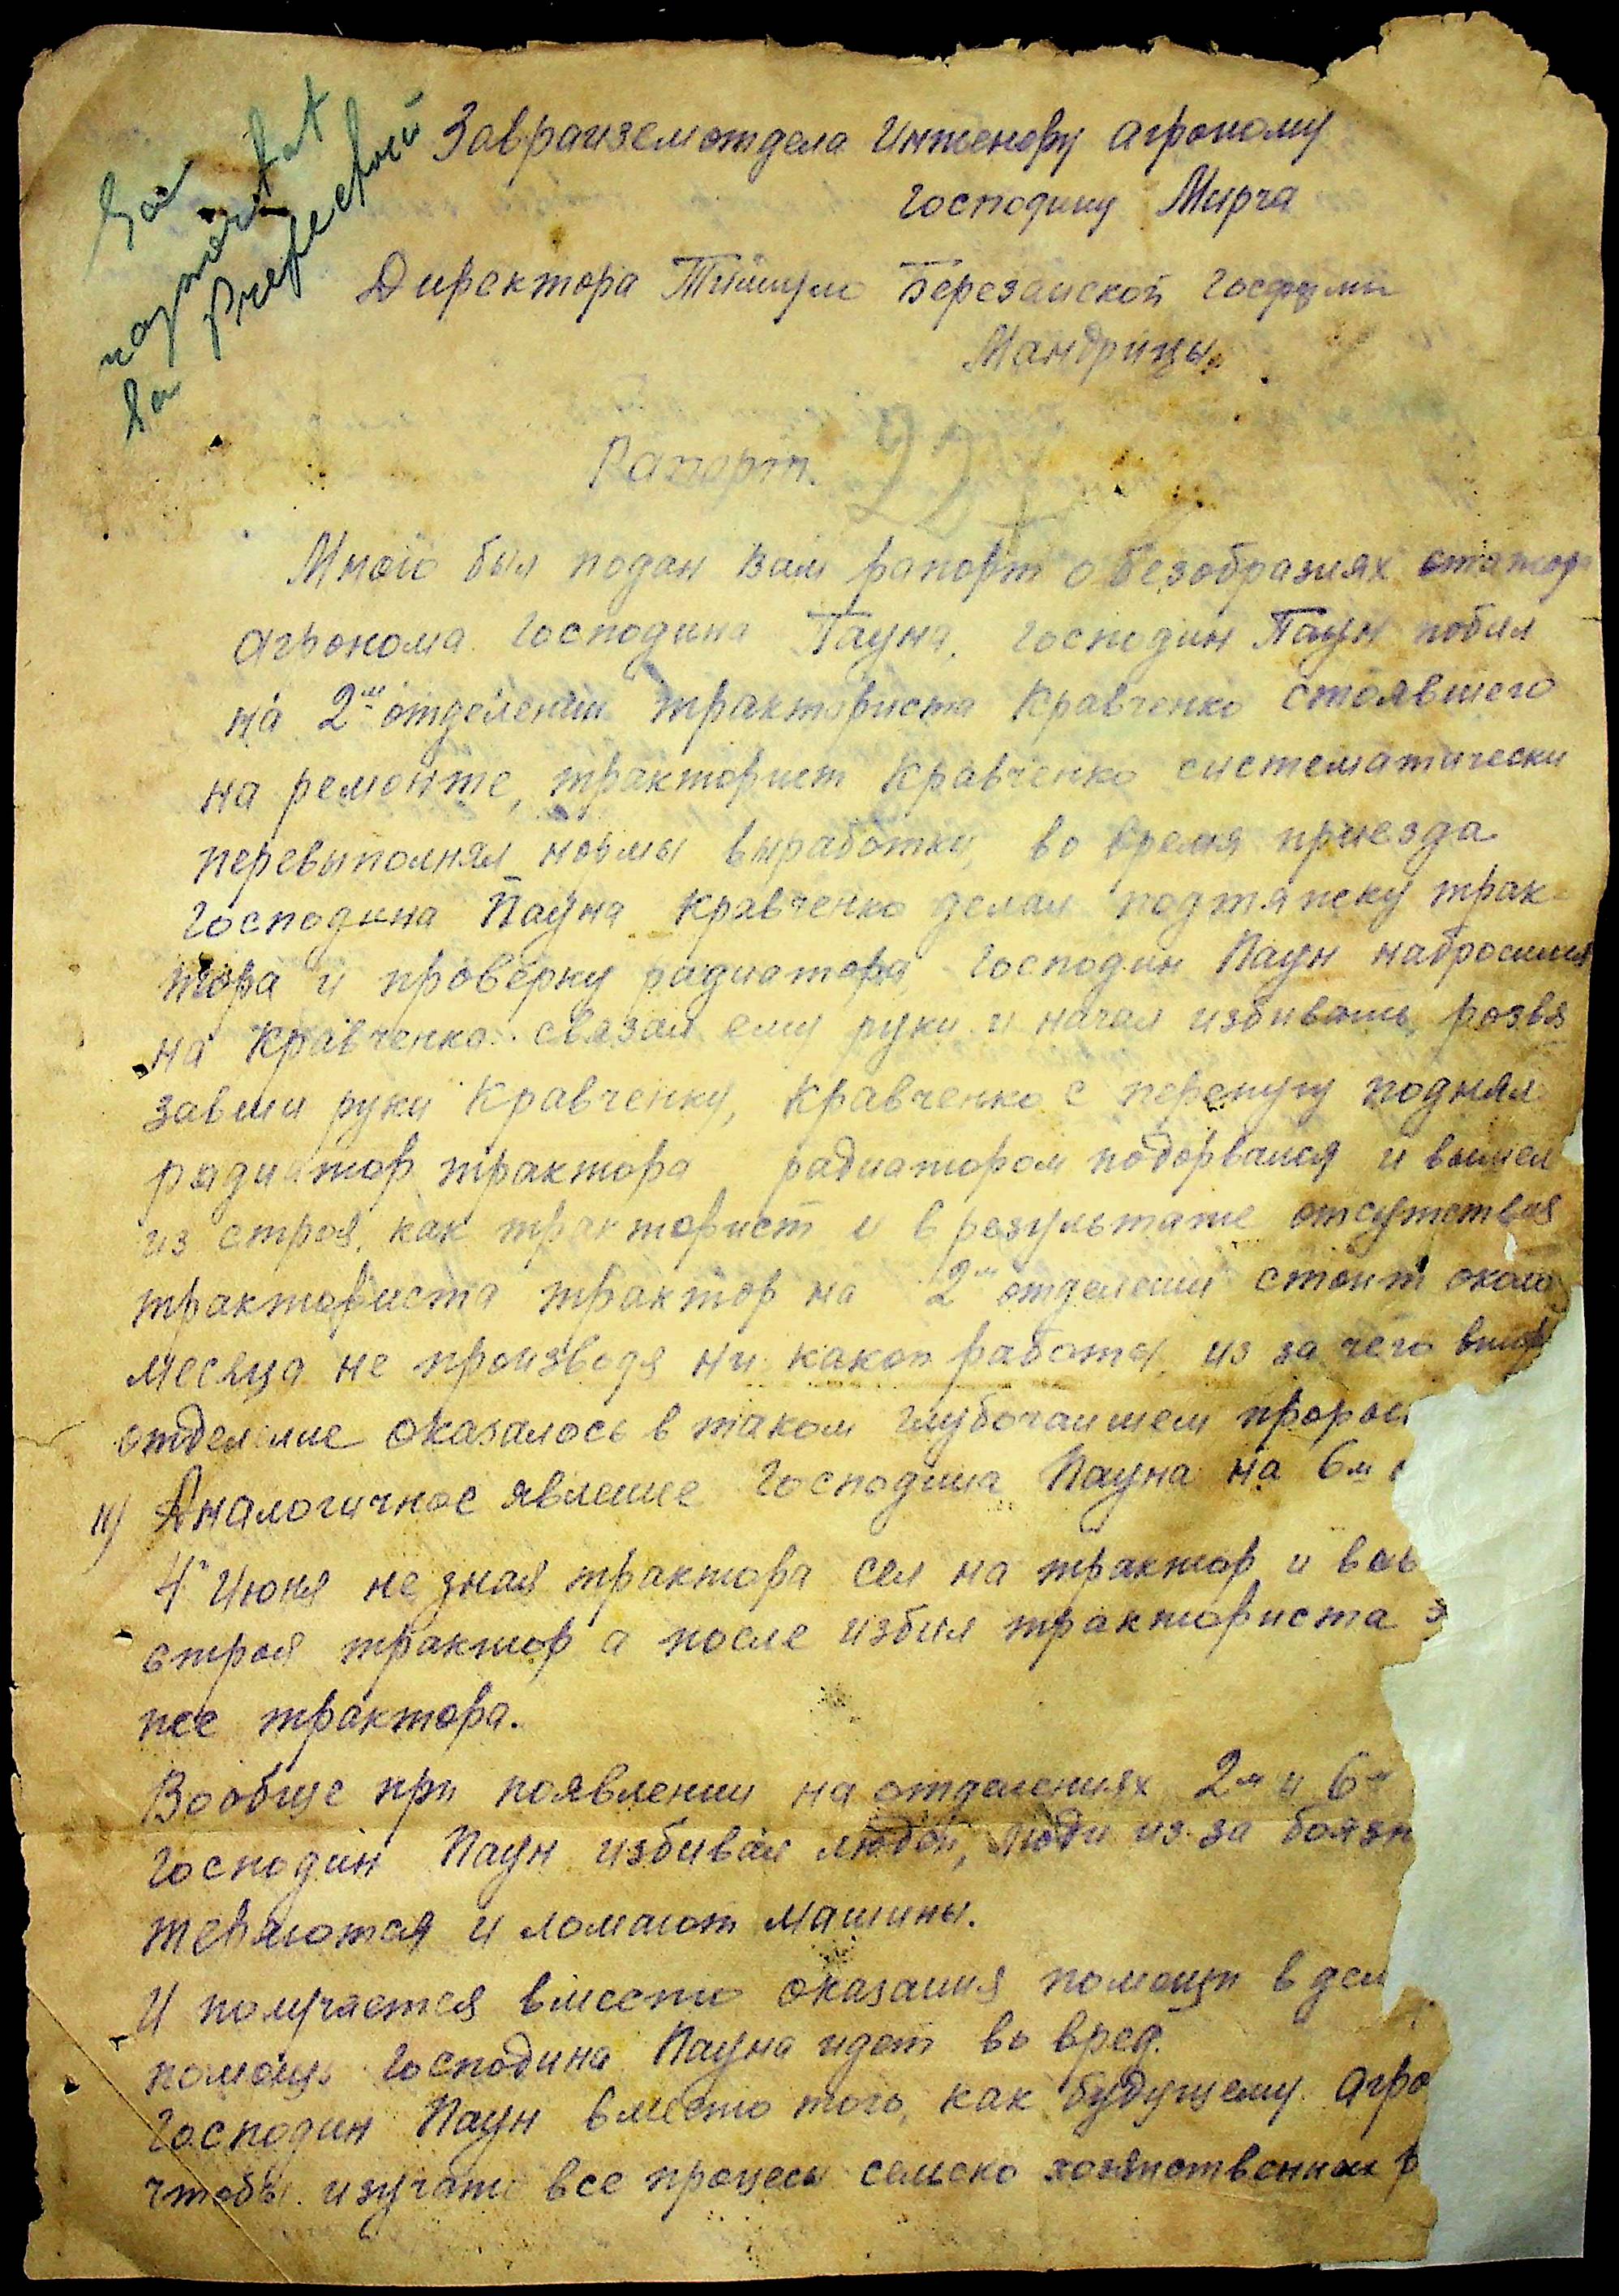 Заврайземотдела Инженеру агроному
Господину Мирча
Директора Березанской Госфермы
Мандрицы.
Рапорт.
227
Мною был подан Вам рапорт о безобразиях
агронома Господина Пауна, Господин Паун побил
на 2м отделении тракториста Кравченко стоявшего
на ремонте, тракторист Кравченко систематически
перевыполнял нормы выработки, во время приезда
Господина Пауна Кравченко делал подтяжку трак-
тора и проверку радиатора, Господин Паун набросился
на Кравченко связал ему руки и начал избивать, розвя
завши руки Кравченку, Кравченко с перепугу поднял
радиатор трактора радиатором подорвался и вышел
из строя, как тракторист и в результате отсутствия
тракториста трактор на 2м отделении стоит около
месяца не производя ни какой работы, из за чего
отделение оказалось в таком глубочаишем
II) Аналогичное явление Господина Пауна на 6м
4го Июня не зная трактора сел на трактор и
строя трактор а после избил тракториста
нее трактора.
Вообще при появлении на отделениях 2м и 6м
Господин Паун избивая людей, люди из за боязн
теряются и ломают машины.
И получается вместо оказания помощи в дел
помощь Господина Пауна идет во вред.
Господин Паун вместо того, как будущему агро
чтобы изучать все процесы сельско хозяйственной р